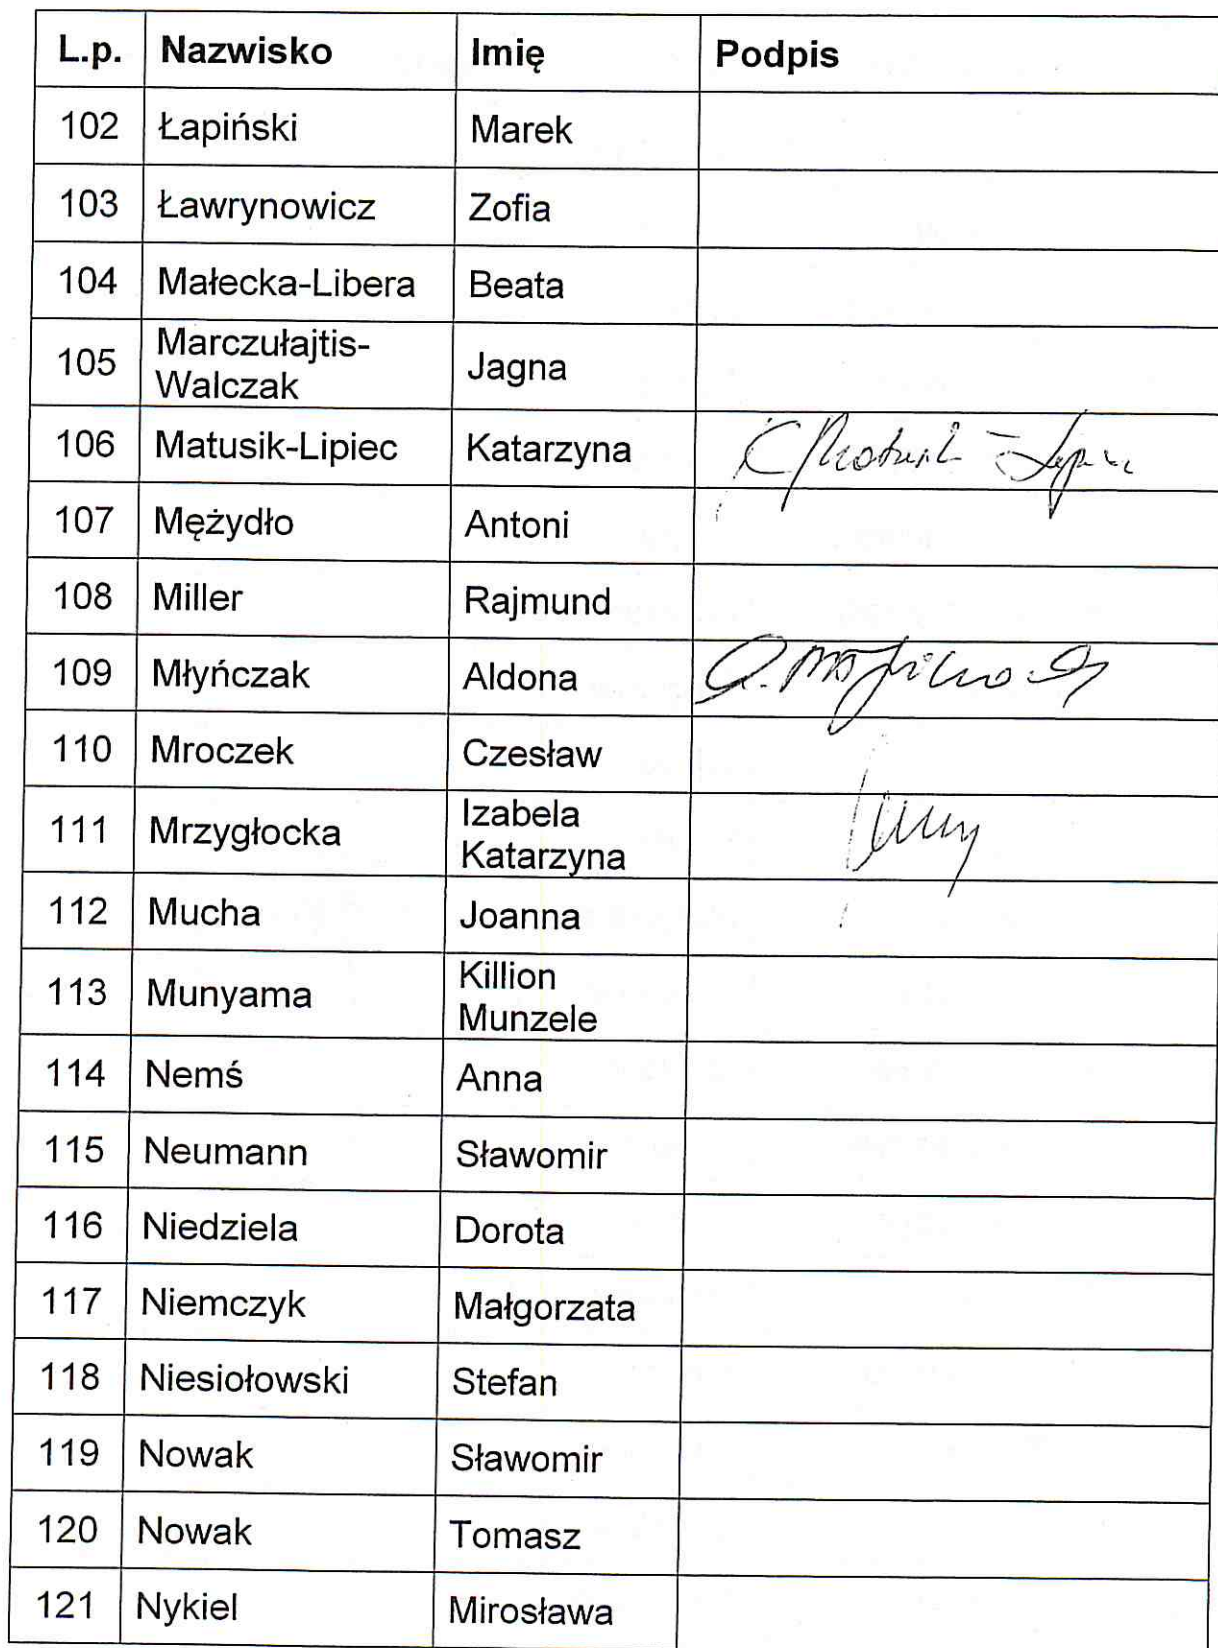 L.p. Nazwisko Imię Podpis
102 Łapiński Marek
103 Ławrynowicz Zofia
104 Małecka-Libera Beata
105 Marczułajtis-
Walczak Jagna
106 Matusik-Lipiec Katarzyna
107 Mężydło Antoni
108 Miller Rajmund
109 Młyńczak Aldona
110 Mroczek Czesław
111 Mrzygłocka Izabela
Katarzyna
112 Mucha Joanna
113 Munyama Killion
Munzele
114 Nemś Anna
115 Neumann Sławomir
116 Niedziela Dorota
117 Niemczyk Małgorzata
118 Niesiołowski Stefan
119 Nowak Sławomir
120 Nowak Tomasz
121 Nykiel Mirosława